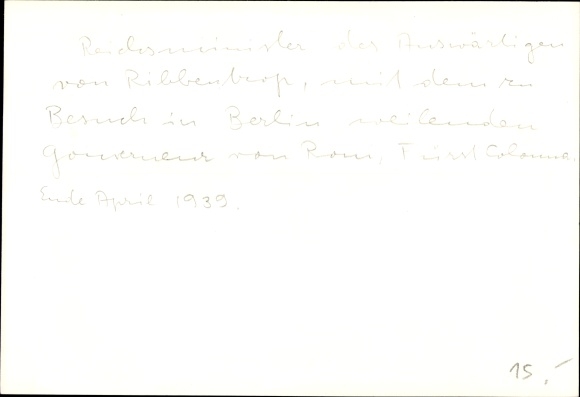 Reichsminister des Auswärtigen
von Ribbentrop, mit dem zu
Besuch in Berlin weilenden
Gouverneur von Rom, Fürst Colonna.
Ende April 1939.
15,-